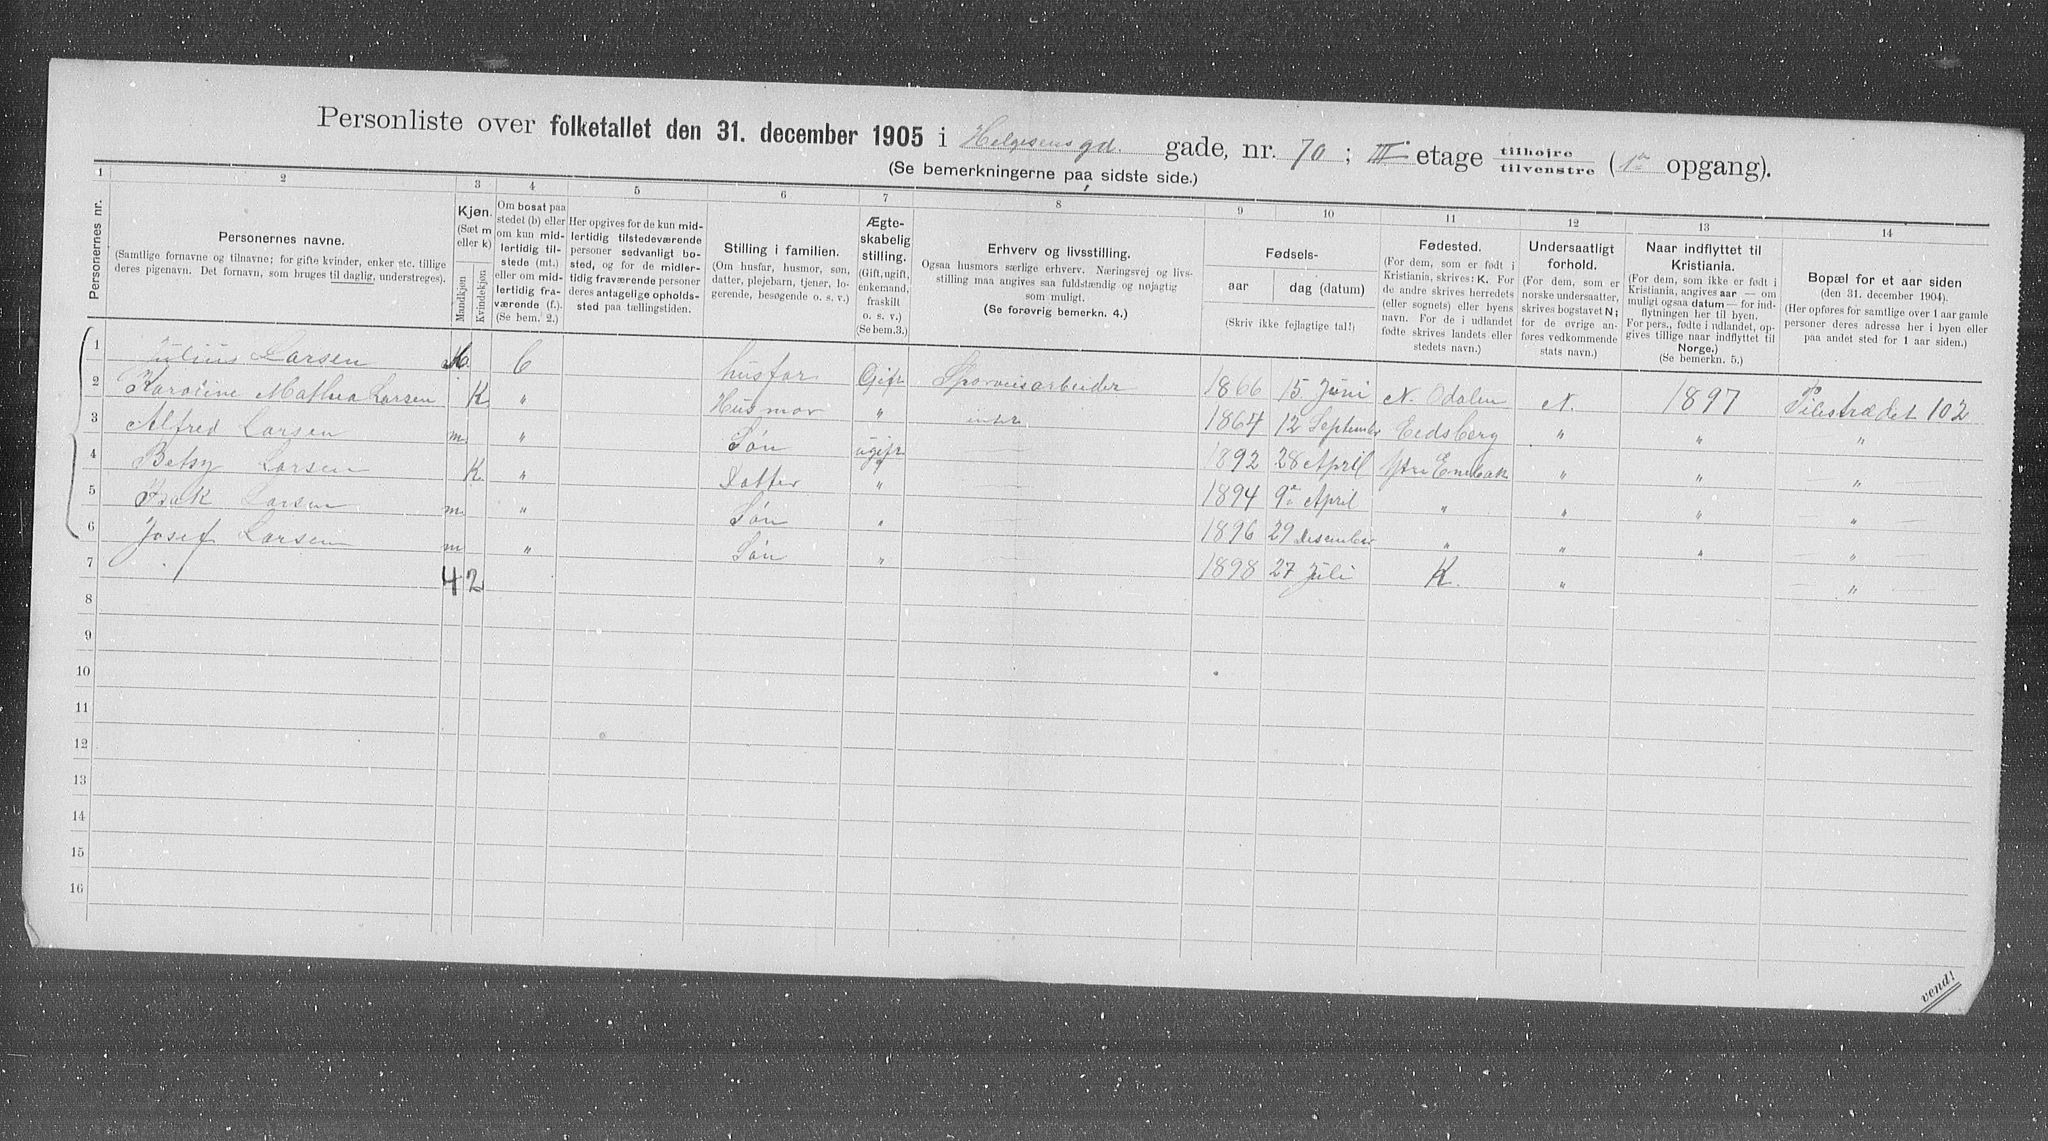 Personliste over folketallet den 31. december 1905 i Helgesens gd. gade, nr. 70 ; III etage tilhøjre tilvenstre (1ste opgang).
(Se bemerkningerne paa sidste side.)
1 2 3 4 5 6 7 8 9 10 11 12 13 14
Personernes nr.
Personernes navne.
(Samtlige fornavne og tilnavne; for gifte kvinder, enker etc. tillige
deres pigenavn. Det fornavn, som bruges til daglig, understreges).
Kjøn.
(Sæt m
eller k)
Mandkjøn
Kvindekjøn
Om bosat paa
stedet (b) eller
om kun mid-
lertidig til-
stede (mt.)
eller om mid-
lertidig fra-
værende (f.).
(Se bem. 2.)
Her opgives for de kun mid-
lertidig tilstedeværende
personer sedvanligt bo-
sted, og for de midler-
tidig fraværende personer
deres antagelige opholds-
sted paa tællingstiden.
Stilling i familien.
(Om husfar, husmor, søn,
datter, plejebarn, tjener, lo-
gerende, besøgende o. s. v.)
Ægte-
skabelig
stilling.
(Gift, ugift,
enkemand,
fraskilt
o. s. v.)
(Se bem.3.)
Erhverv og livsstilling.
Ogsaa husmors særlige erhverv. Næringsvej og livs-
stilling maa angives saa fuldstændig og nøjagtig
som muligt.
(Se forøvrig bemerkn. 4.)
Fødsels-
aar dag (datum)
(Skriv ikke fejlagtige tal!)
Fødested.
(For dem, som er født i
Kristiania, skrives: K. For
de andre skrives herredets
(eller sognets) eller byens
navn. For de i udlandet
fødte skrives landets eller
stedets navn.)
Undersaatligt
forhold.
(For dem, som er
norske undersaatter,
skrives bogstavet N;
for de øvrige an-
føres vedkommende
stats navn.)
Naar indflyttet til
Kristiania.
(For dem, som ikke er født i
Kristiania, angives aar — om
muligt ogsaa datum — for ind-
flytningen her til byen.
For pers., fødte i udlandet, op-
gives tillige naar indflyttet til
Norge.)
(Se bemerkn. 5.)
Bopæl for et aar siden
(den 31. december 1904).
(Her opføres for samtlige over 1 aar gamle
personer deres adresse her i byen eller
paa andet sted for 1 aar siden.)
1 Julius Larsen M. b husfar Gift Sporveisarbeider 1866 15 Juni N. Odalen N. 1897 Pilestrædet 102
2 Karoline Mathea Larsen K " Husmor " intet 1864 12 September Eidsberg " " "
3 Alfred Larsen m. " Søn ugift 1892 28 April Ytre Enebak " " "
4 Betsy Larsen K " Datter " 1894 9de April " " " "
5 Isak Larsen m. " Søn " 1896 29 Desember " " " "
6 Josef Larsen m " Søn " 1898 27 Juli K. " "
7 4 2
8
9
10
11
12
13
14
15
16
vend!